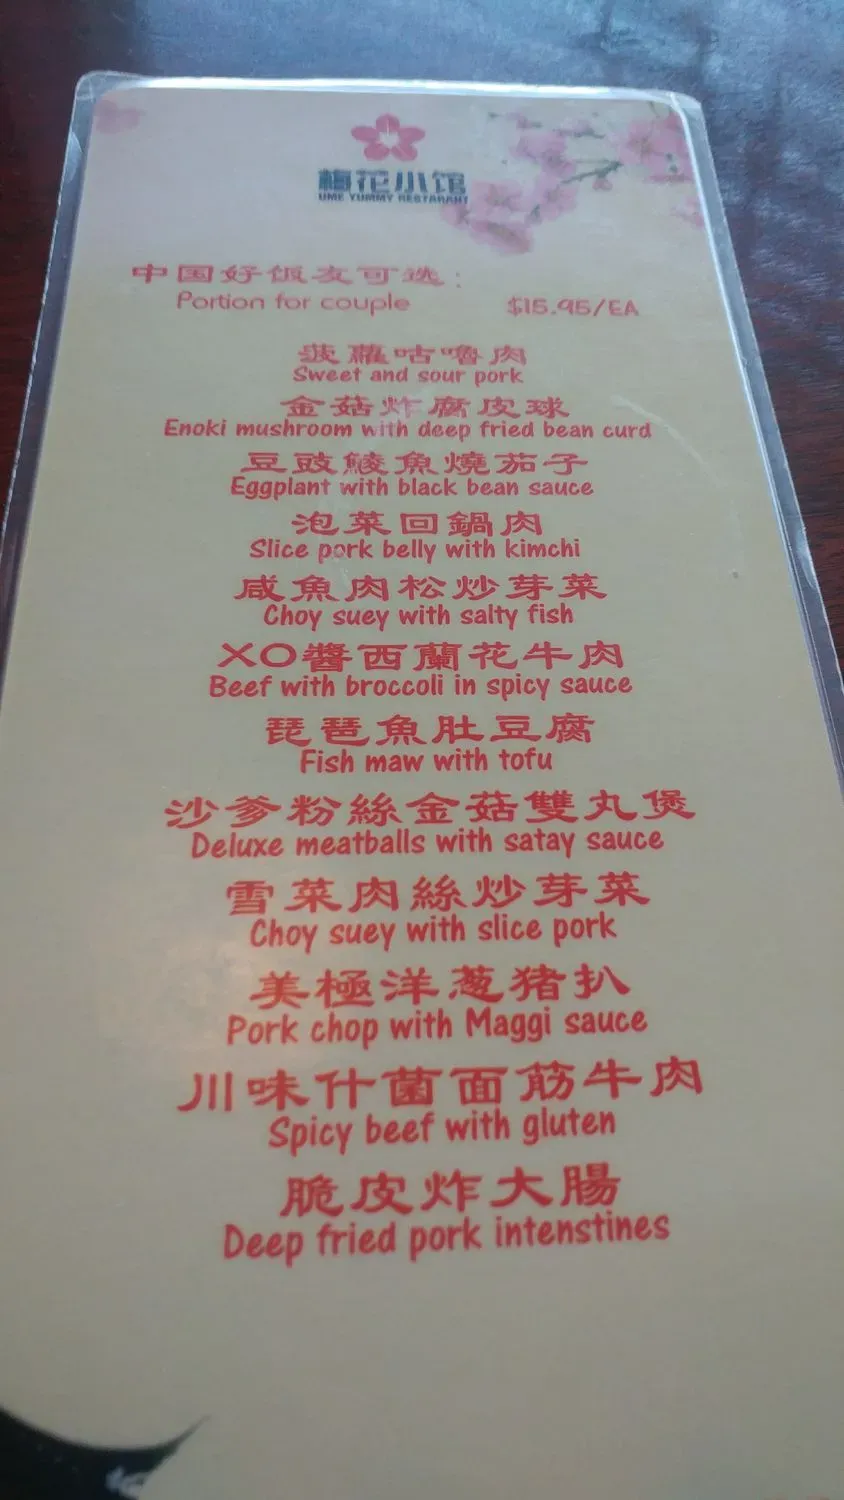 梅花小馆
UME YUMMY RESTARANT
中国好饭友可选：
Portion for couple $15.95/EA
菠蘿咕嚕肉
Sweet and sour pork
金菇炸腐皮球
Enoki mushroom with deep fried bean curd
豆豉鯪魚燒茄子
Eggplant with black bean sauce
泡菜回鍋肉
Slice pork belly with kimchi
咸魚肉松炒芽菜
Choy suey with salty fish
XO醬西蘭花牛肉
Beef with broccoli in spicy sauce
琵琶魚肚豆腐
Fish maw with tofu
沙爹粉絲金菇雙丸煲
Deluxe meatballs with satay sauce
雪菜肉絲炒芽菜
Choy suey with slice pork
美極洋葱猪扒
Pork chop with Maggi sauce
川味什菌面筋牛肉
Spicy beef with gluten
脆皮炸大腸
Deep fried pork intenstines